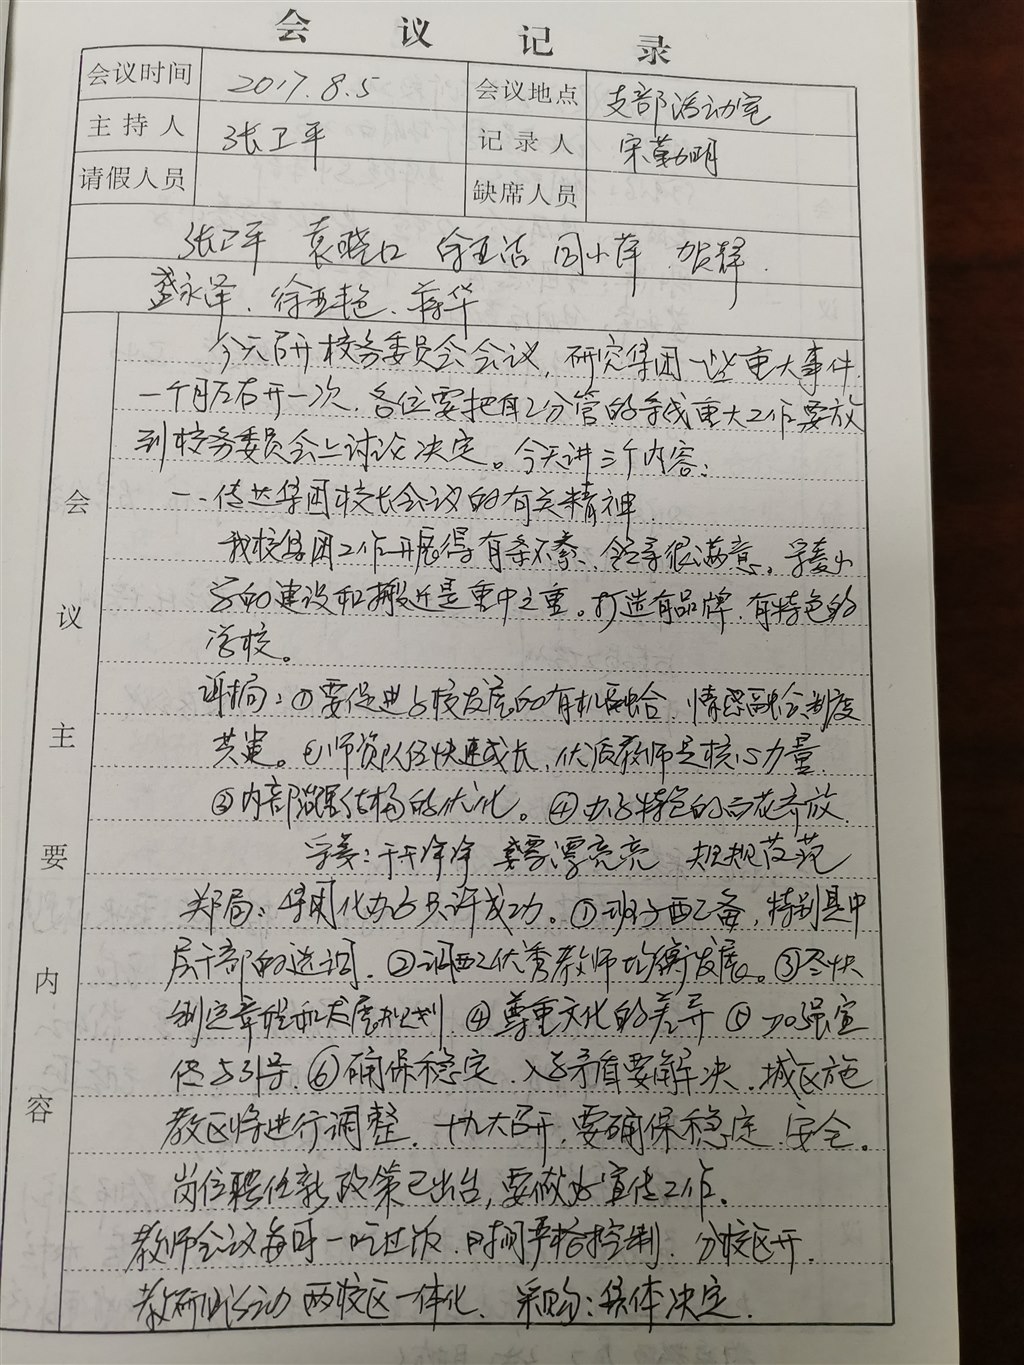 会议记录
会议时间 2017.8.5 会议地点 支部活动室
主持人 张卫平 记录人 宋勤明
请假人员 缺席人员
张卫平 袁晓 徐亚洁 周小萍 贺辉
盛永泽、徐亚艳、蒋华
会议主要内容
今天召开校务委员会会议,研究集团一些重大事件.
一个月左右开一次.各位要把自己分管的条线重大工作要放
到校务委员会上讨论决定。今天讲三个内容:
一.传达集团校长会议的有关精神.
我校集团工作开展得有条不紊、领导很满意。
的建设和搬迁是重中之重。打造有品牌.有特色的
学校。
局:①要促进各校发展的有机融合.情感融合.制度
共建。②师资队伍快速成长、优质教师是核心力量.
③内部管理结构的优化。④办学特色的百花齐放.
干干净净 漂漂亮亮 规规范范
郑局:集团化办学只许成功。①班子配备,特别是中
层干部的选调.②调配优秀教师均衡发展。③尽快
制定章程和发展规划.④尊重文化的差异⑤加强宣
传与引导.⑥确保稳定.入学矛盾要解决.城区施
教区将进行调整.十九大召开.要确保稳定.安全。
岗位聘任新政策已出台,要做好宣传工作.
教师会议每 一吃过饭.时间严格控制.分校区开.
教研活动 两校区一体化、采购:具体决定.